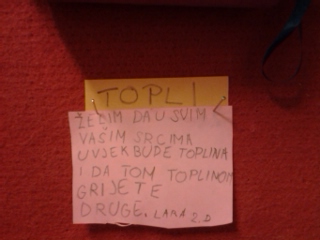 TOPLI
ŽELIM DA U SVIM
VAŠIM SRCIMA
UVJEK BUDE TOPLINA
I DA TOM TOPLINOM
GRIJETE
DRUGE. LARA 2.D